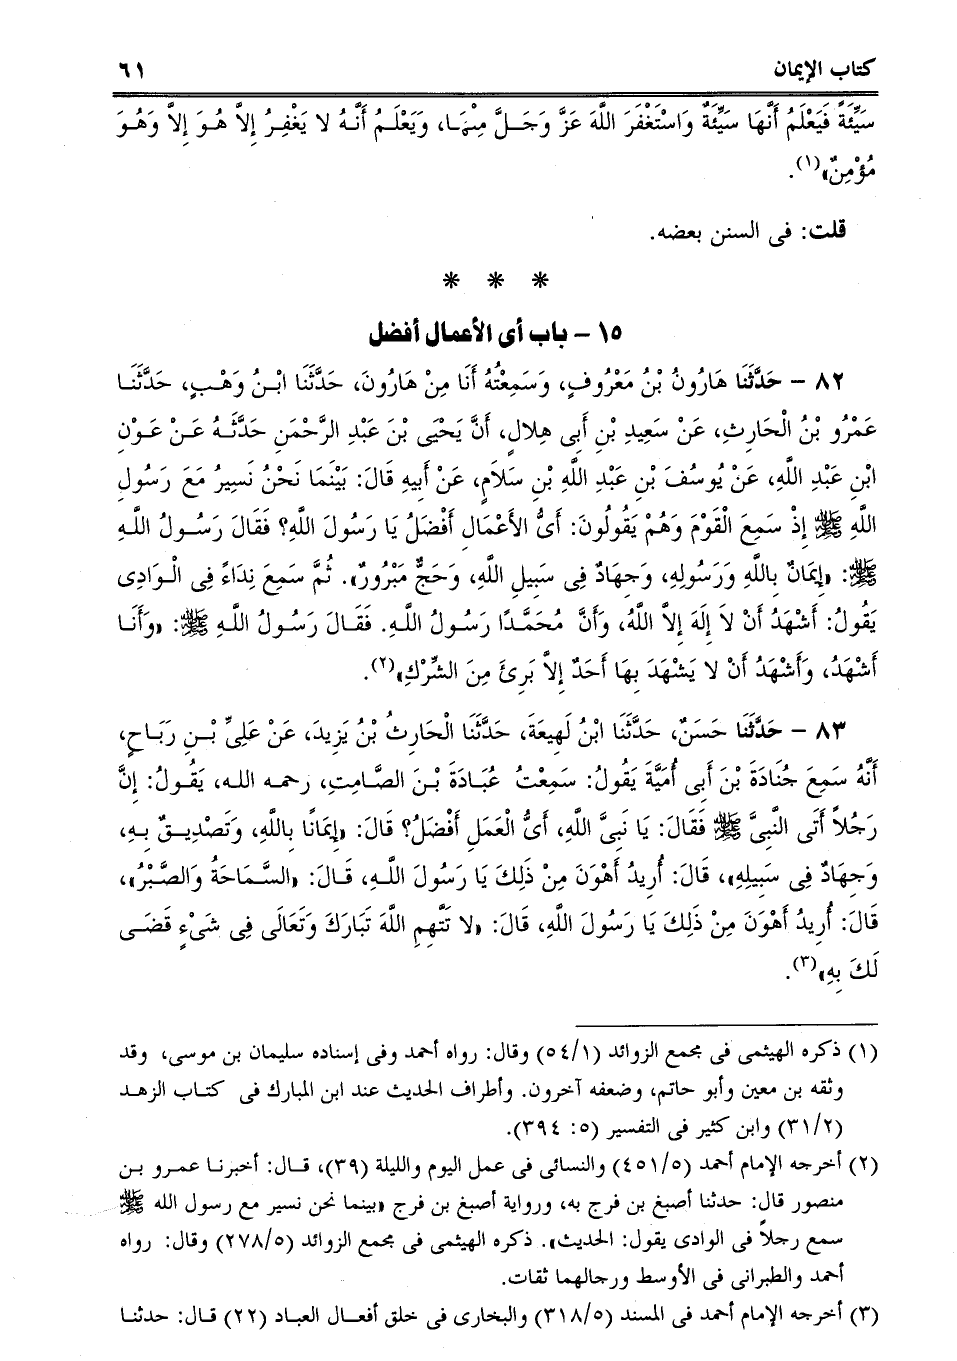 كتاب الإيمان ٦١
سَيِّئَةً فَيَعْلَمُ أَنَّهَا سَيِّئَةٌ وَاسْتَغْفَرَ اللَّهَ عَزَّ وَجَلَّ مِنْهَا، وَيَعْلَمُ أَنَّهُ لا يَغْفِرُ إِلاَّ هُوَ إِلاَّ وَهُوَ
مُؤْمِنٌ»(١).
قلت: فى السنن بعضه.
* * *
١٥ - باب أى الأعمال أفضل
٨٢ - حَدَّثَنَا هَارُونُ بْنُ مَعْرُوفٍ، وَسَمِعْتُهُ أَنَا مِنْ هَارُونَ، حَدَّثَنَا ابْنُ وَهْبٍ، حَدَّثَنَا
عَمْرُو بْنُ الْحَارِثِ، عَنْ سَعِيدِ بْنِ أَبِى هِلالٍ، أَنَّ يَحْيَى بْنَ عَبْدِ الرَّحْمَنِ حَدَّثَهُ عَنْ عَوْنِ
ابْنِ عَبْدِ اللَّهِ، عَنْ يُوسُفَ بْنِ عَبْدِ اللَّهِ بْنِ سَلاَمٍ، عَنْ أَبِيهِ قَالَ: بَيْنَمَا نَحْنُ نَسِيرُ مَعَ رَسُولِ
اللَّهِ ﷺ إِذْ سَمِعَ الْقَوْمَ وَهُمْ يَقُولُونَ: أَىُّ الأَعْمَالِ أَفْضَلُ يَا رَسُولَ اللَّهِ؟ فَقَالَ رَسُولُ اللَّهِ
ﷺ: «إِيمَانٌ بِاللَّهِ وَرَسُولِهِ، وَجِهَادٌ فِى سَبِيلِ اللَّهِ، وَحَجٌّ مَبْرُورٌ». ثُمَّ سَمِعَ نِدَاءً فِى الْوَادِى
يَقُولُ: أَشْهَدُ أَنْ لاَ إِلَهَ إِلاَّ اللَّهُ، وَأَنَّ مُحَمَّدًا رَسُولُ اللَّهِ. فَقَالَ رَسُولُ اللَّهِ ﷺ: «وَأَنَا
أَشْهَدُ، وَأَشْهَدُ أَنْ لا يَشْهَدَ بِهَا أَحَدٌ إِلاَّ بَرِئَ مِنَ الشِّرْكِ»(٢).
٨٣ - حَدَّثَنَا حَسَنٌ، حَدَّثَنَا ابْنُ لَهِيعَةَ، حَدَّثَنَا الْحَارِثُ بْنُ يَزِيدَ، عَنْ عَلِىِّ بْنِ رَبَاحٍ،
أَنَّهُ سَمِعَ جُنَادَةَ بْنَ أَبِى أُمَيَّةَ يَقُولُ: سَمِعْتُ عُبَادَةَ بْنَ الصَّامِتِ، رحمه الله، يَقُولُ: إِنَّ
رَجُلاً أَتَى النَّبِىَّ ﷺ فَقَالَ: يَا نَبِىَّ اللَّهِ، أَىُّ الْعَمَلِ أَفْضَلُ؟ قَالَ: «إِيمَانًا بِاللَّهِ، وَتَصْدِيقٌ بِهِ،
وَجِهَادٌ فِى سَبِيلِهِ»، قَالَ: أُرِيدُ أَهْوَنَ مِنْ ذَلِكَ يَا رَسُولَ اللَّهِ، قَالَ: «السَّمَاحَةُ وَالصَّبْرُ»،
قَالَ: أُرِيدُ أَهْوَنَ مِنْ ذَلِكَ يَا رَسُولَ اللَّهِ، قَالَ: «لا تَتَّهِمِ اللَّهَ تَبَارَكَ وَتَعَالَى فِى شَىْءٍ قَضَى
لَكَ بِهِ»(٣).
(١) ذكره الهيثمى فى مجمع الزوائد (٥٤/١) وقال: رواه أحمد وفى إسناده سليمان بن موسى، وقد
وثقه بن معين وأبو حاتم، وضعفه آخرون. وأطراف الحديث عند ابن المبارك فى كتاب الزهد
(٣١/٢) وابن كثير فى التفسير (٥: ٣٩٤).
(٢) أخرجه الإمام أحمد (٤٥١/٥) والنسائى فى عمل اليوم والليلة (٣٩)، قال: أخبرنا عمرو بن
منصور قال: حدثنا أصبغ بن فرج به، ورواية أصبغ بن فرج «بينما نحن نسير مع رسول الله ﷺ
سمع رجلاً فى الوادى يقول: الحديث». ذكره الهيثمى فى مجمع الزوائد (٢٧٨/٥) وقال: رواه
أحمد والطبرانى فى الأوسط ورجالهما ثقات.
(٣) أخرجه الإمام أحمد فى المسند (٣١٨/٥) والبخارى فى خلق أفعال العباد (٢٢) قال: حدثنا